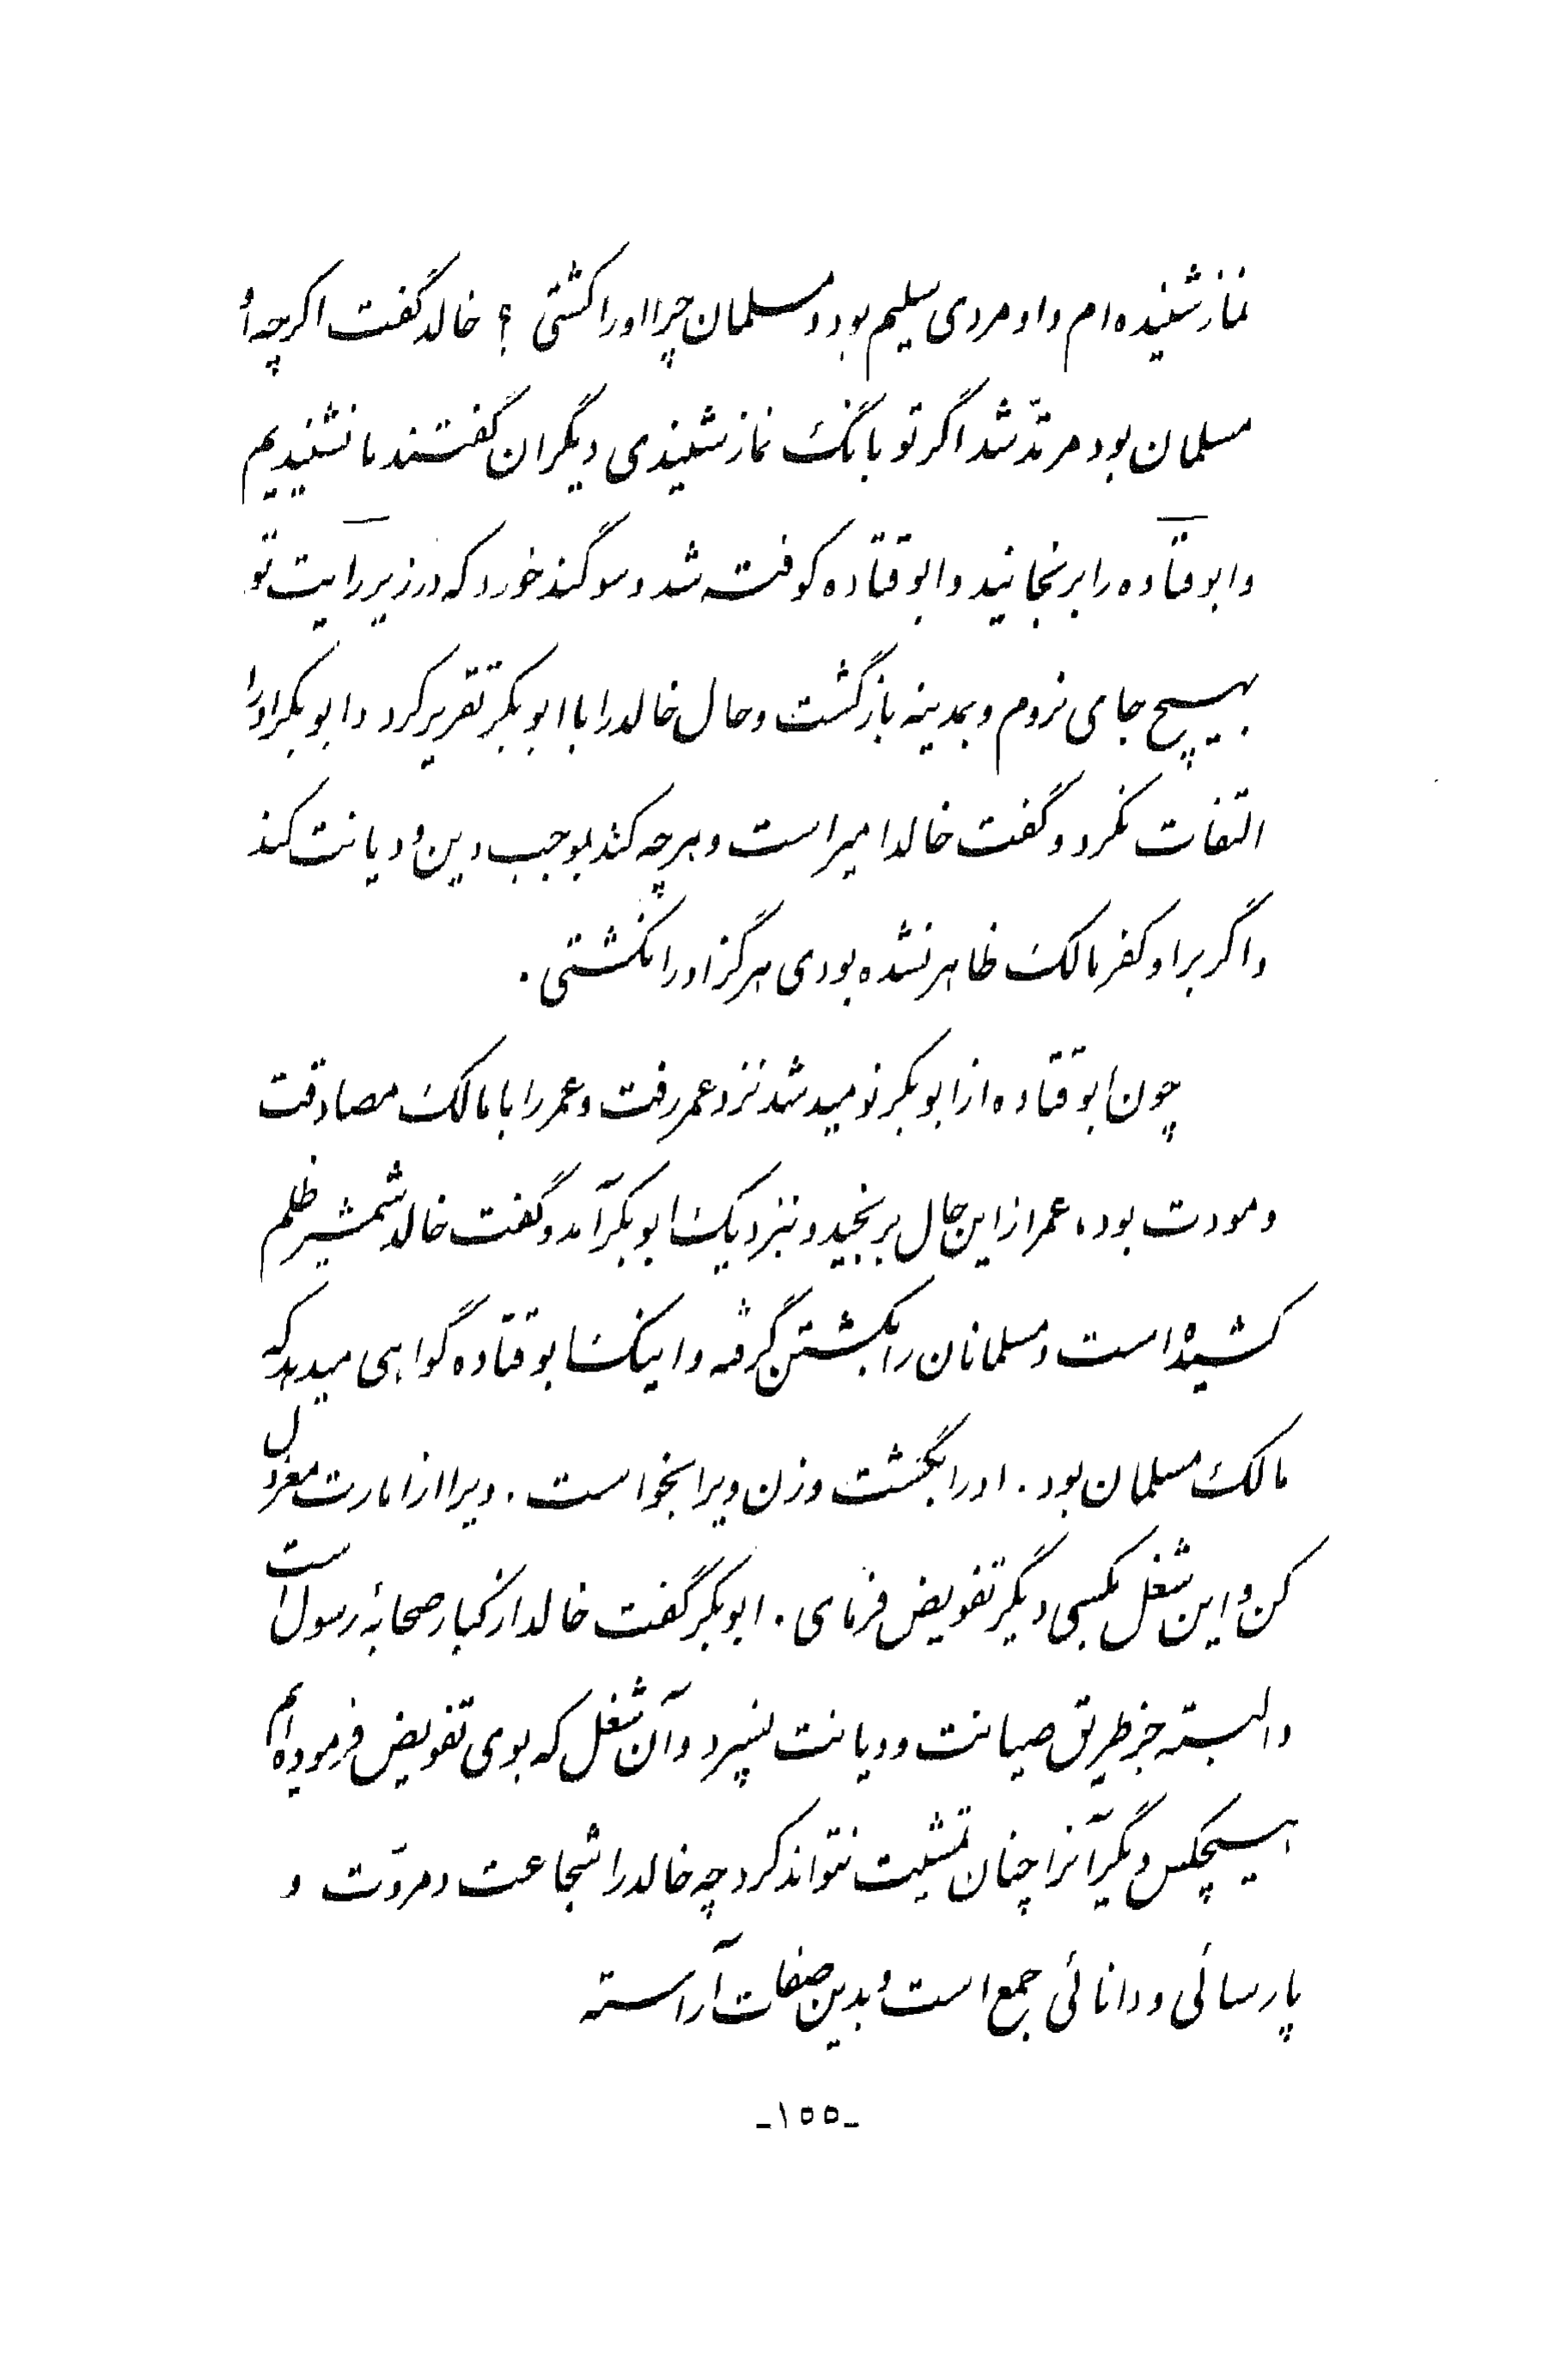 نماز شنیده ام و او مردی سلیم بود و مسلمان چرا او را کشتی ؟ خالد گفت اگرچه او
مسلمان بود مرتدّ شد اگر تو بانگ نماز شنیدی دیگران گفتند ما نشنیدیم
و ابوقتاده را برنجانید و ابوقتاده کوفته شد و سوگند خورد که در زیر رایت تو
بهیچ جای نروم و بمدینه بازگشت و حال خالد را با ابوبکر تقریر کرد و ابوبکر او را
التفات نکرد و گفت خالد امیر است و هرچه کند بوجب دین و دیانت کند
و اگر بر او کفر مالک ظاهر نشده بودی هرگز او را نکشتی .
چون ابوقتاده از ابوبکر نومید شد نزد عمر رفت و عمر را با مالک مصادقت
و مودت بود ، عمر از این حال برنجید و بنزدیک ابوبکر آمد و گفت خالد شمشیر ظلم
کشیده است و مسلمانان را بکشتن گرفته و اینک ابوقتاده گواهی میدهد که
مالک مسلمان بود . او را بکشت و زن ویرا بخواست . ویرا از امارت معزول
کن و این شغل بکسی دیگر تفویض فرمای . ابوبکر گفت خالد از کبار صحابهٔ رسول است
و البته جز طریق صیانت و دیانت نسپرد و آن شغل که بوی تفویض فرموده ایم
هیچکس دیگر آنرا چنان تمشیت نتواند کرد چه خالد را شجاعت و مروّت و
پارسائی و دانائی جمع است و بدین صفات آراسته
-۱۵۵-